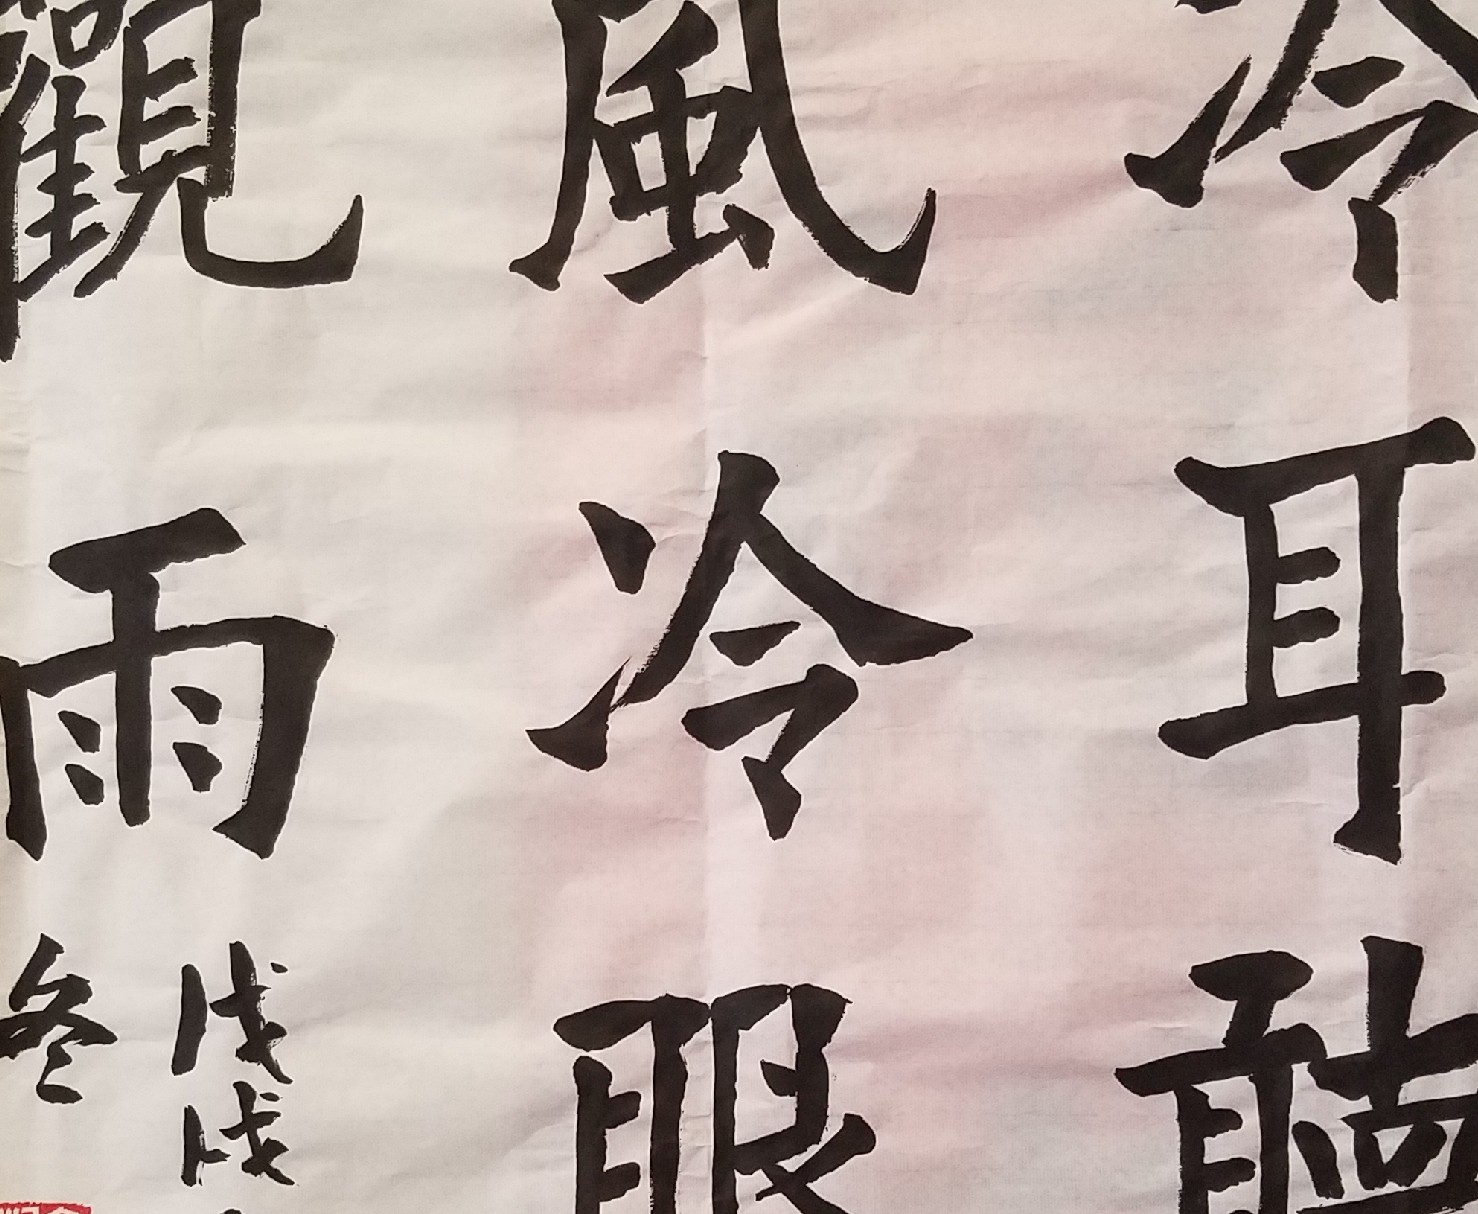 冷耳聽
風冷眼
觀雨
戊戌
冬